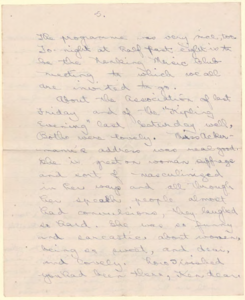 3.
The programme was very nice, too.
To-night at half past eight is to
be the Monday Music Club
meeting to which we all
are invited to go.
About the Association of last
Friday and of the "Kipling
Evening" last Saturday well
Both were lovely. Miss
address was real good.
She is great on woman suffrage
and sort of masculinized
in her ways and all through
her speech people almost
had convulsions, they laughed
so hard. She was so funny
and sarcastic about woman's
being so sweet, and dear,
and lovely.